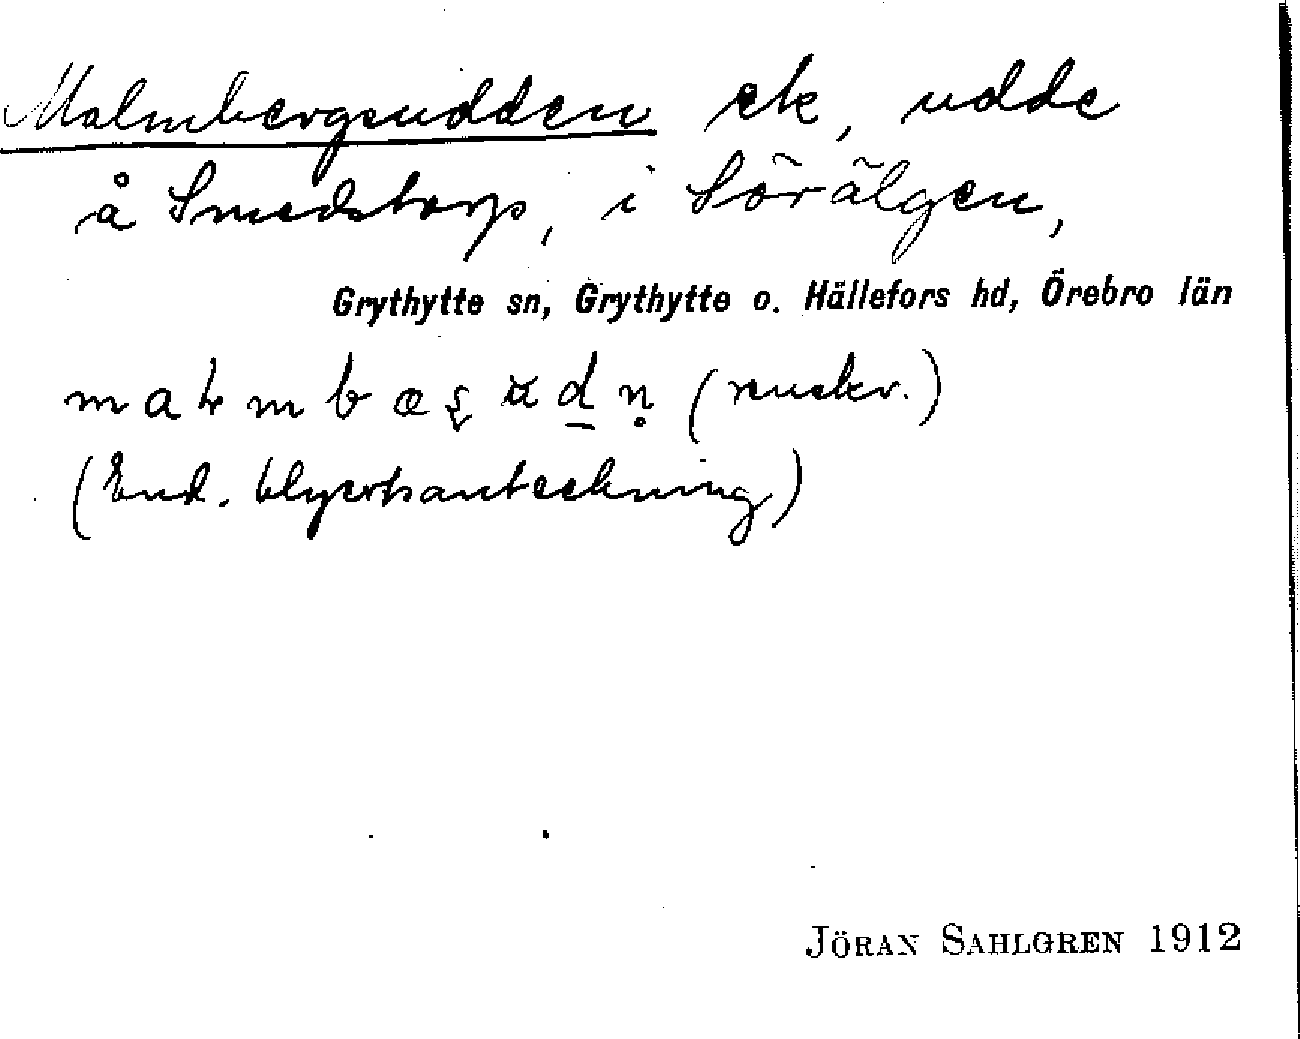 Malmbergsudden ek, udde
å Smedstorp, i Sörälgen,
Grythytte sn, Grythytte o. Hällefors hd, Örebro län
(muskr.)
(End. blyertsanteckning)
JÖRAN SAHLGREN 1912